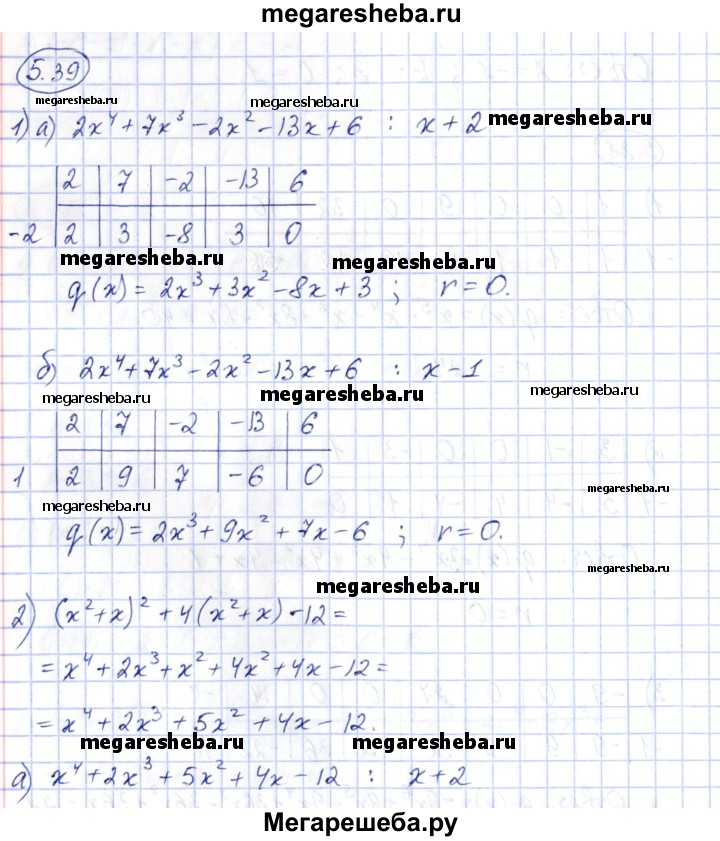 megaresheba.ru
5.39
megaresheba.ru megaresheba.ru
1) а) 2x⁴ + 7x³ - 2x² - 13x + 6 : x + 2 megaresheba.ru
2 7 -2 -13 6
-2 2 3 -8 3 0
megaresheba.ru megaresheba.ru
q(x) = 2x³ + 3x² - 8x + 3 ; r = 0.
б) 2x⁴ + 7x³ - 2x² - 13x + 6 : x - 1
megaresheba.ru megaresheba.ru megaresheba.ru
2 7 -2 -13 6
1 2 9 7 -6 0
megaresheba.ru
megaresheba.ru
q(x) = 2x³ + 9x² + 7x - 6 ; r = 0.
megaresheba.ru
megaresheba.ru
2) (x² + x)² + 4(x² + x) - 12 =
= x⁴ + 2x³ + x² + 4x² + 4x - 12 =
= x⁴ + 2x³ + 5x² + 4x - 12.
megaresheba.ru megaresheba.ru
а) x⁴ + 2x³ + 5x² + 4x - 12 : x + 2
Мегарешеба.ру